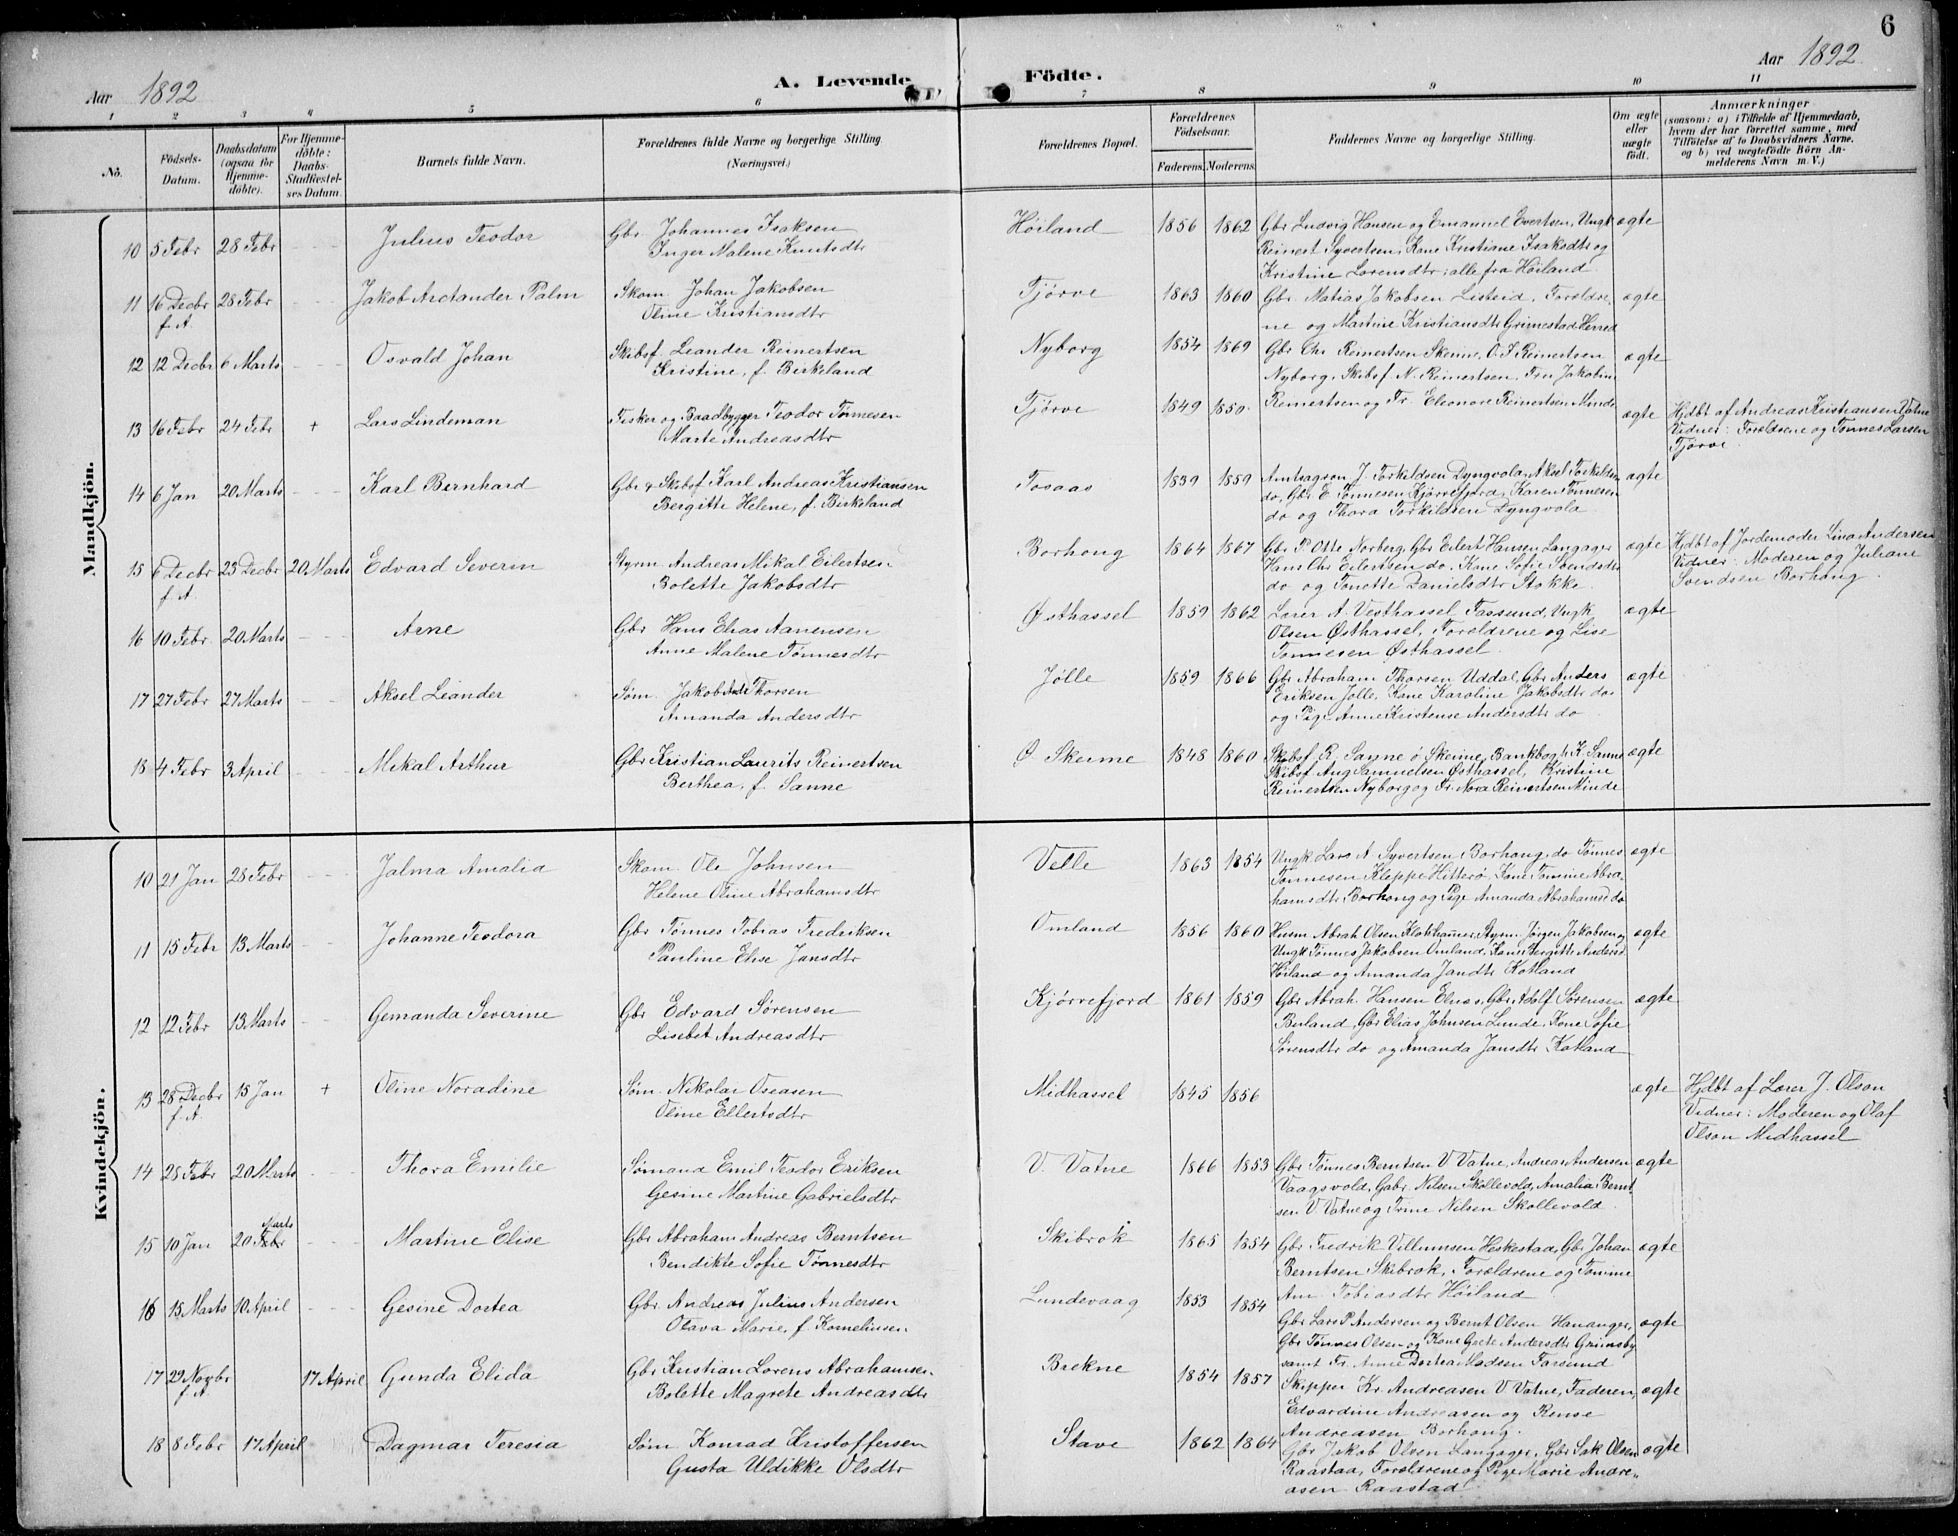 6
Aar 1892
A. Levende Födte.
Aar 1892
1 2 3 4 5 6 7 8 9 10 11
No.
Födsels-Datum.
Daabsdatum (ogsaa for Hjemmedöbte).
For Hjemmedöbte: Daabs-Stadfæstelses Datum.
Barnets fulde Navn.
Forældrenes fulde Navne og borgerlige Stilling (Næringsvei.)
Forældrenes Bopæl.
Forældrenes Födselsaar.
Faderens. Moderens.
Faddernes Navne og borgerlige Stilling.
Om ægte eller uægte født.
Anmærkninger
(saasom: a) i Tilfælde af Hjemmedaab, hvem der har forrettet samme, med Tilföielse af to Daabsvidners Navne. og b) ved uægtefödte Börn Anmelderens Navn m. V.)
Mandkjön.
10 5 Febr 28 Febr Julius Teodor Gbr Johannes Isaksen
Inger Malene Knutsdtr
Høiland 1856 1862 Gbr Ludvig Hansen og Emanuel Evertsen, Ungk ægte
Reinert Syvertsen, Kone Kristiane Isaksdtr og
Kristine Lorensdtr, alle fra Høiland
11 16 Decbr f. A. 28 Febr Jakob Arctander Palm Skom Johan Jakobsen
Oline Kristiansdtr
Tjørve 1863 1860 Gbr Matias Jakobsen Listeid, Forældre ægte
ne og Martine Kristiansdtr Grimestad Herred
12 12 Decbr 6 Marts Osvald Johan Skibsf Leander Reinertsen
Kristine, f. Birkeland
Nyborg 1854 1869 Gbr Chr Reinertsen Skeime, O. F. Reinertsen ægte
Nyborg, Skibsf N. Reinertsen, Fru Jakobine
Reinertsen og Fr. Eleonore Reinertsen Minde
13 16 Febr 24 Febr + Lars Lindeman Fisker og Baadbygger Teodor Tønnesen
Marte Andreasdtr
Tjørve 1849 1850 ægte Hjdbt af Andreas Kristiansen Vatne
Vidner: Forældrene og Tønnes Larsen
Tjørve
14 6 Jan 20 Marts Karl Bernhard Gbr & Skibsf Karl Andreas Kristiansen
Bergitte Helene, f. Birkeland
Tosaas 1839 1859 J. Torkildsen Dyngvola, Aksel Torkildsen ægte
do, Gbr E Tønnesen Kjørrefjord, Karen Tønnesen
do og Thora Torkildsen Dyngvola
15 6 Decbr f. A. 23 Decbr 20 Marts Edvard Severin Styrm Andreas Mikal Eilertsen
Bolette Jakobsdtr
Borhong 1864 1867 Gbr P. Otte Norberg, Gbr Eilert Hansen Langager ægte Hjdbt af Jordemoder Lina Andersen
Hans Chr Eilertsen do, Kone Sofie Svendsdtr Vidner: Moderen og Juliane
do og Tonette Danielsdtr Stokke Svendsen Borhong.
16 10 Febr 20 Marts Arne Gbr Hans Elias Aanensen
Anne Malene Tønnesdtr
Østhassel 1859 1862 Lærer A. Vesthassel Farsund, Ungk ægte
Olsen Østhassel, Forældrene og Lise
Tønnesen Østhassel
17 27 Febr 27 Marts Aksel Leander Søm. Jakob Thorsen
Amanda Andersdtr
Jølle 1859 1866 Gbr Abraham Thorsen Uddal, Gbr Anders ægte
Eriksen Jølle, Kone Karoline Jakobsdtr do
og Pige Anne Kristense Andersdtr do
18 4 Febr 3 April Mikal Arthur Gbr Kristian Laurits Reinertsen
Berthea, f. Sanne
Ø Skeime 1848 1860 Skibsf R. Sanne ø Skeime, Bankbogh K. Sanne ægte
Skibsf Aug Samuelsen Østhassel, Kristine
Reinertsen Nyborg og Fr. Nora Reinertsen Minde
Kvindekjön.
10 21 Jan 28 Febr Jalma Amalia Skom Ole Johnsen
Helene Oline Abrahamsdtr
Velle 1863 1854 Ungk Lars A. Syvertsen Borhong, do Tønnes ægte
Tønnesen Kleppe Hitterø, Kone Tomine Abra-
hamsdtr Borhong og Pige Amanda Abrahamsd do
11 15 Febr 13 Marts Johanne Teodora Gbr Tønnes Tobias Fredriksen
Pauline Elise Jansdtr
Omland 1856 1860 Husm Abrah Olsen Klokhamer, Styrm Jørgen Jakobsen og ægte
Ungk Tønnes Jakobsen Omland, Kone Bergitte Andersd
Høiland og Amanda Jansdtr Kotland
12 12 Febr 13 Marts Gemanda Severine Gbr Edvard Sørensen
Lisebet Andreasdtr
Kjørrefjord 1861 1859 Gbr Abrah Hansen Elnes, Gbr Adolf Sørensen ægte
Buland, Gbr Elias Johnsen Lunde, Kone Sofie
Sørensdtr do og Amanda Jansdtr Kotland
13 28 Decbr f. A. 15 Jan + Oline Noradine Søm. Nikolai Oseasen
Oline Ellertsdtr
Midhassel 1845 1856 ægte Hjdbt af Lærer J. Olson
Vidner: Moderen og Olaf
Olson Midhassel
14 28 Febr 20 Marts Thora Emilie Sømand Emil Teodor Eriksen
Gesine Martine Gabrielsdtr
V. Vatne 1866 1853 Gbr Tønnes Berntsen V Vatne, Andreas Andersen ægte
Vaagsvold, Gabr Nilsen Skollevold, Amalia Bernt
sen V. Vatne og Trine Nilsen Skollevold
15 10 Jan 20 Marts Febr Martine Elise Gbr Abraham Andreas Berntsen
Bendikte Sofie Tønnesdtr
Skibrok 1865 1854 Gbr Fredrik Villumsen Heskestad, Gbr Johan ægte
Berntsen Skibrok, Forældrene og Tomine
Tobiasdtr Høiland
16 15 Marts 10 April Gesine Dortea Gbr. Andreas Julius Andersen
Olava Marie, f. Korneliussen
Lundevaag 1853 1854
Gbr Lars P Andersen og Bernt Olsen Hananger, ægte
Gbr Tønnes Olsen og Kone Grete Andersdtr Grimsby
samt Fr. Anne Dortea Madsen Farsund
17 29 Novbr f. A. 17 April Gunda Elida Gbr Kristian Lorens Abrahamsen
Bolette Magrete Andreasdtr
Brekne 1854 1857 Skipper Kr. Andreasen V Vatne, Faderen, ægte
Edvardine Andreasen og Rense
Andreasen Borhong.
18 8 Febr 17 April Dagmar Teresia Søm Konrad Kristoffersen
Gusta Uldikke Olsdtr
Stave 1862 1864 Gbr Jakob Olsen Langager, Gbr Isak Olsen ægte
Raastad, Forældrene og Pige Marie Andre-
asen Raastad